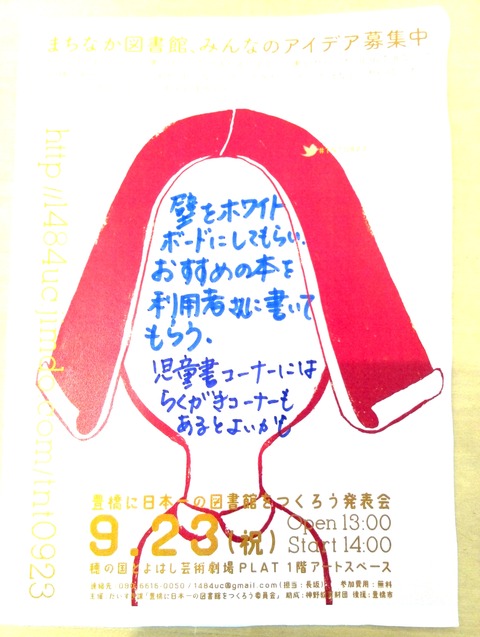 まちなか図書館、みんなのアイデア募集中
http://1484uc.jimdo.com/tnt0923
壁をホワイト
ボードにしてもらい、
おすすめの本を
利用者に書いて
もらう。
児童書コーナーには
らくがきコーナーも
あるとよいかも
豊橋に日本一の図書館をつくろう発表会
9.23(祝) Open 13:00
Start 14:00
穂の国とよはし芸術劇場PLAT 1階アートスペース
連絡先 090-6616-0050 / 1484uc@gmail.com (担当:長坂) 参加費用:無料
「豊橋に日本一の図書館をつくろう委員会」 助成: 後援:豊橋市